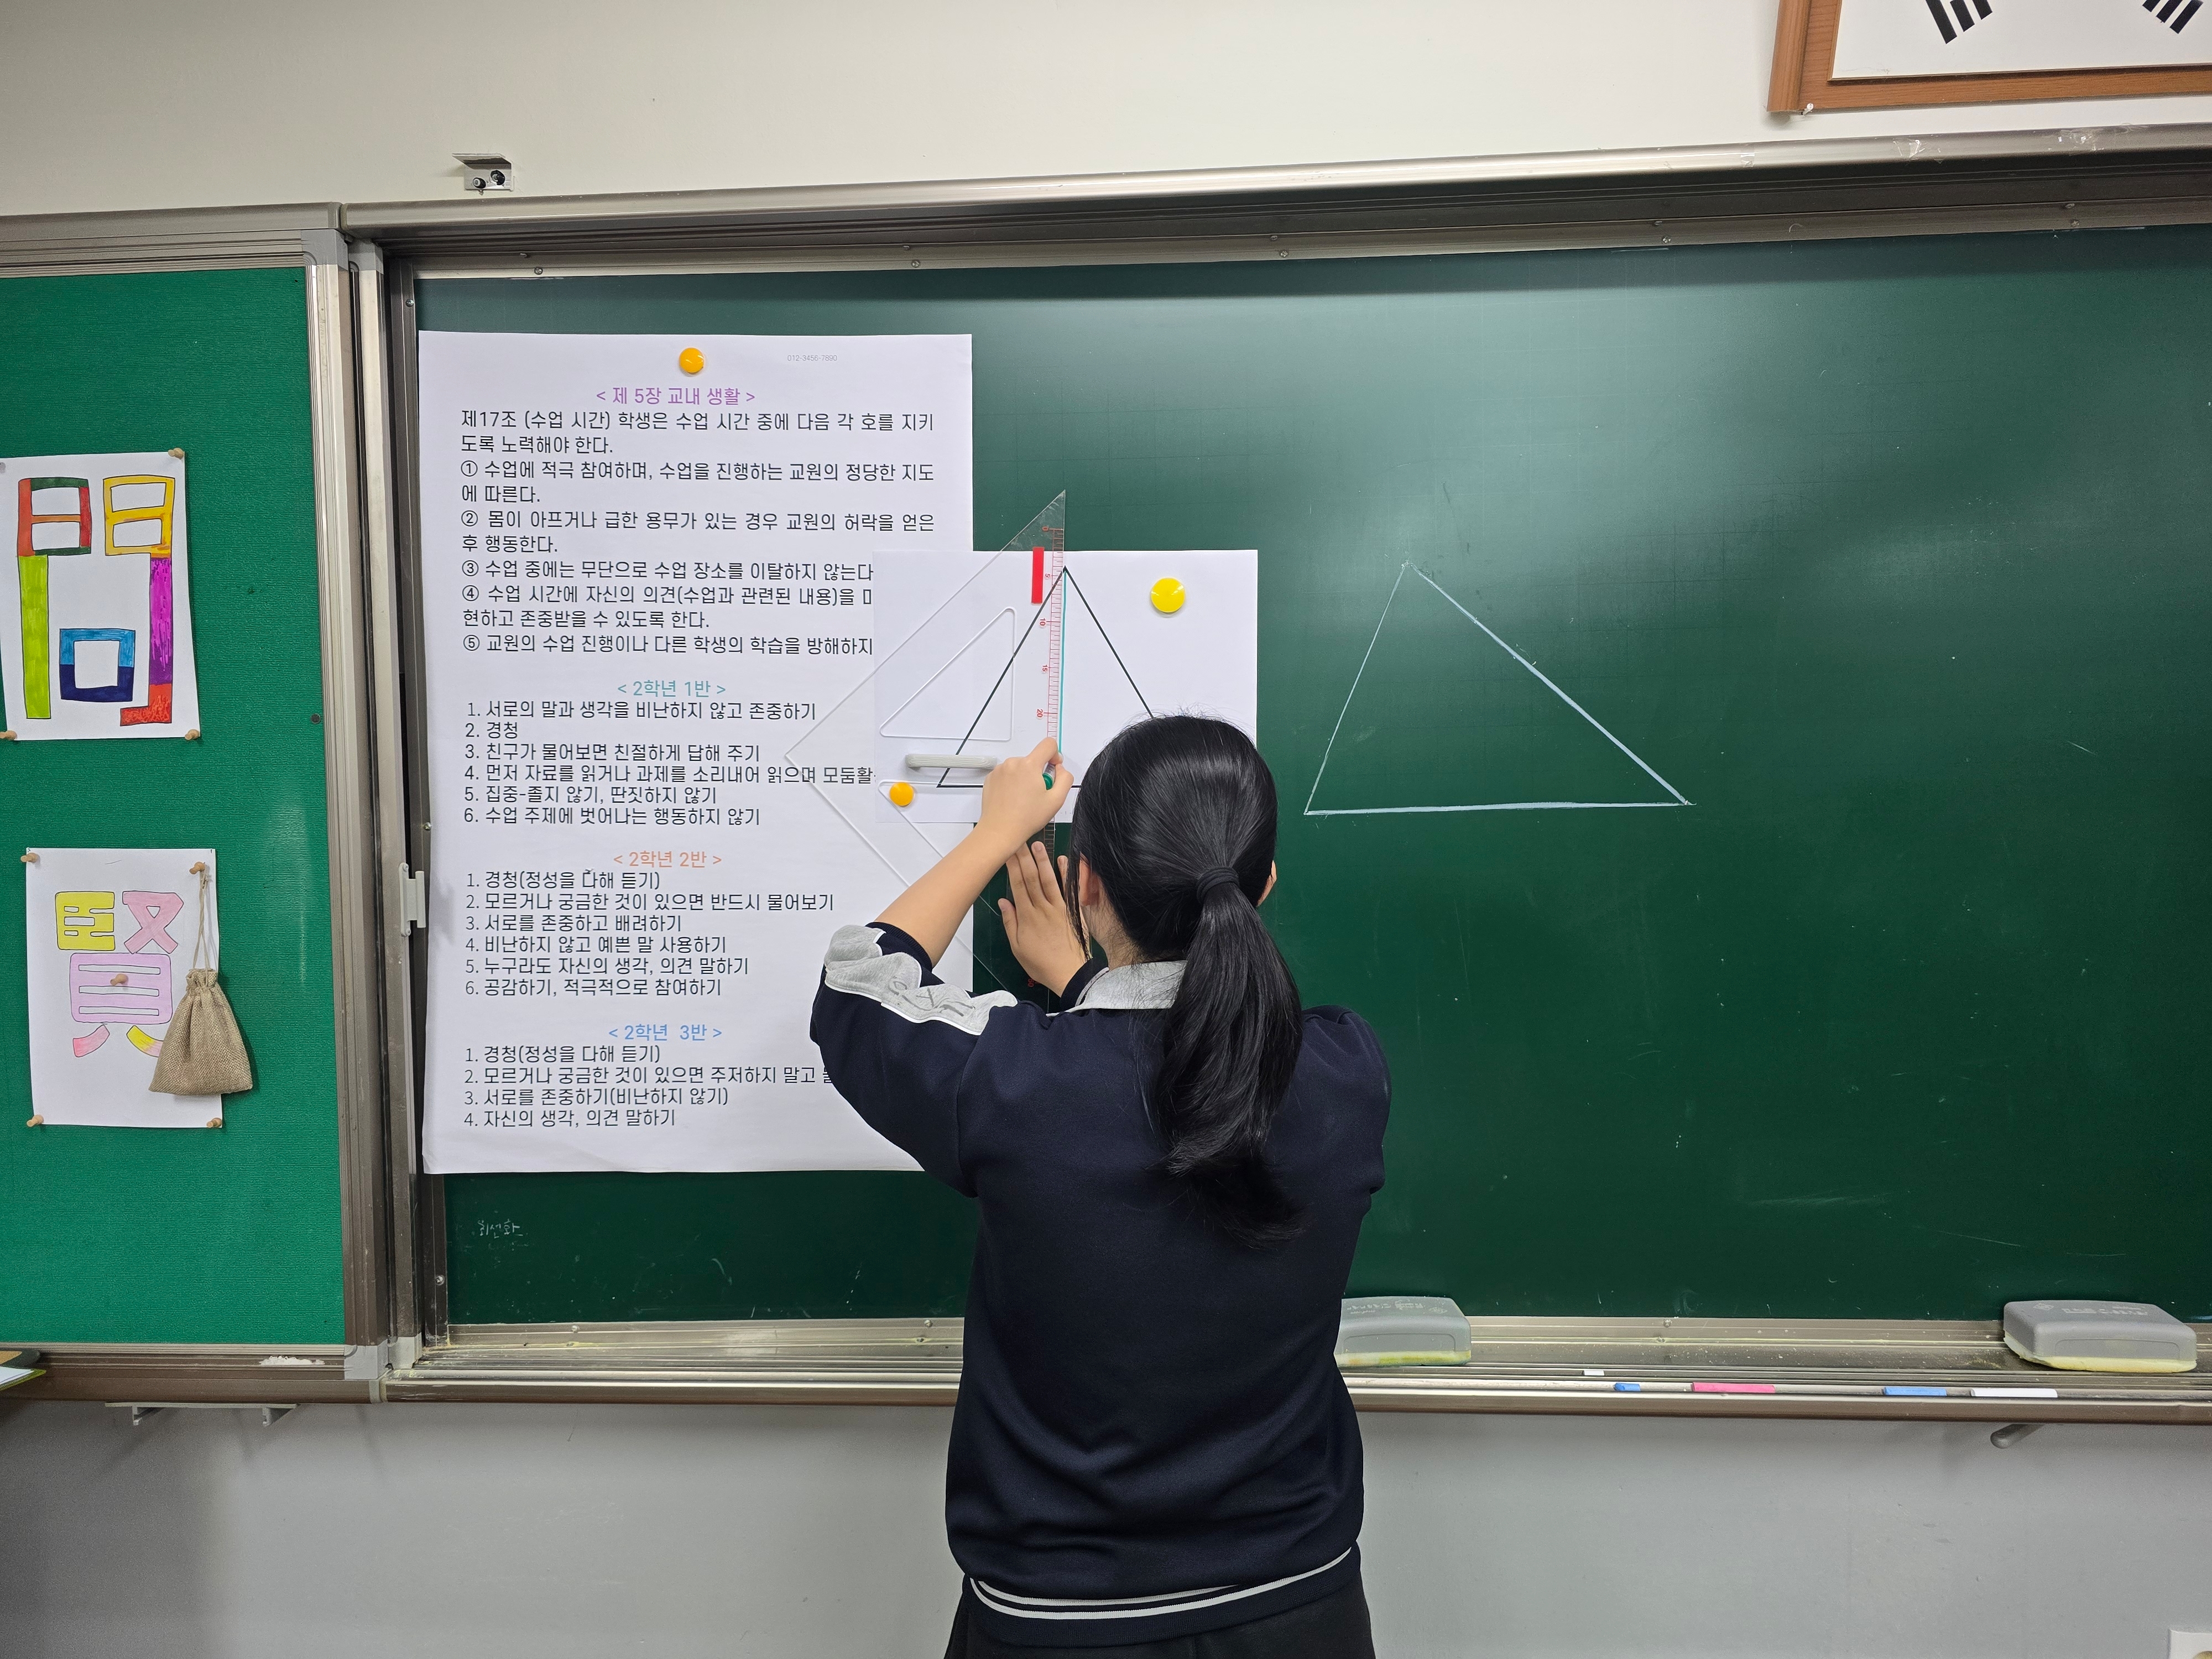 問
賢
012-3456-7890
< 제 5장 교내 생활 >
제17조 (수업 시간) 학생은 수업 시간 중에 다음 각 호를 지키
도록 노력해야 한다.
① 수업에 적극 참여하며, 수업을 진행하는 교원의 정당한 지도
에 따른다.
② 몸이 아프거나 급한 용무가 있는 경우 교원의 허락을 얻은
후 행동한다.
③ 수업 중에는 무단으로 수업 장소를 이탈하지 않는다
④ 수업 시간에 자신의 의견(수업과 관련된 내용)을
현하고 존중받을 수 있도록 한다.
⑤ 교원의 수업 진행이나 다른 학생의 학습을 방해하지
< 2학년 1반 >
1. 서로의 말과 생각을 비난하지 않고 존중하기
2. 경청
3. 친구가 물어보면 친절하게 답해 주기
4. 먼저 자료를 읽거나 과제를 소리내어 읽으며
5. 집중-졸지 않기, 딴짓하지 않기
6. 수업 주제에 벗어나는 행동하지 않기
< 2학년 2반 >
1. 경청(정성을 다해 듣기)
2. 모르거나 궁금한 것이 있으면 반드시 물어보기
3. 서로를 존중하고 배려하기
4. 비난하지 않고 예쁜 말 사용하기
5. 누구라도 자신의 생각, 의견 말하기
6. 공감하기, 적극적으로 참여하기
< 2학년 3반 >
1. 경청(정성을 다해 듣기)
2. 모르거나 궁금한 것이 있으면 주저하지 말고
3. 서로를 존중하기(비난하지 않기)
4. 자신의 생각, 의견 말하기
5
10
15
20